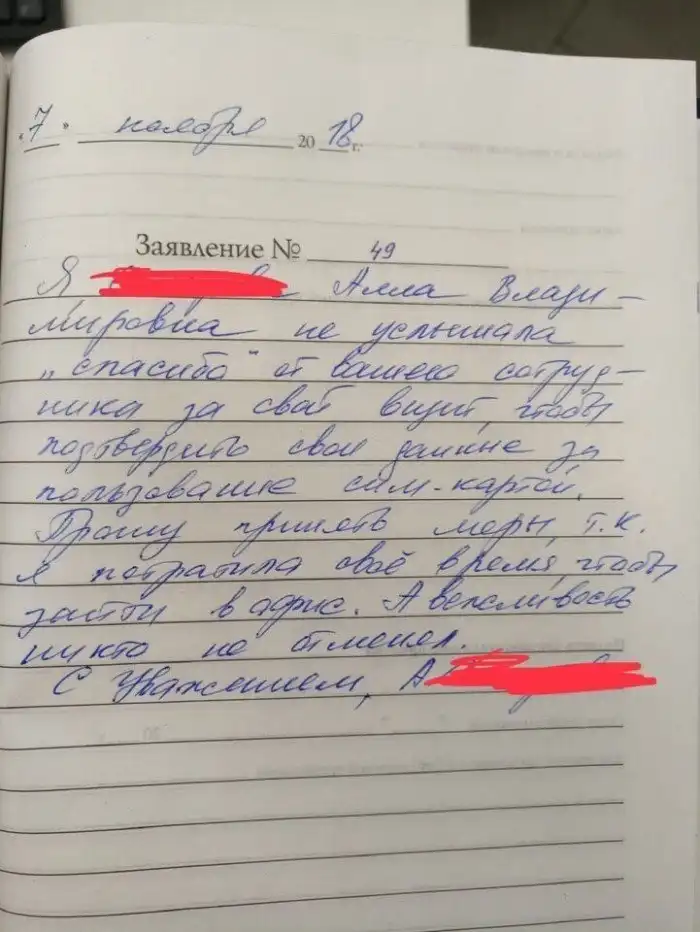 «7» ноября 2018 г.
Заявление № 49
Я Алла Влади-
мировна не услышала
"спасибо" от вашего сотруд-
ника за свой визит, чтобы
подтвердить свои данные за
пользование сим-картой.
Прошу принять меры, т.к.
я потратила своё время, чтобы
зайти в офис. А вежливость
никто не отменял.
С Уважением, А